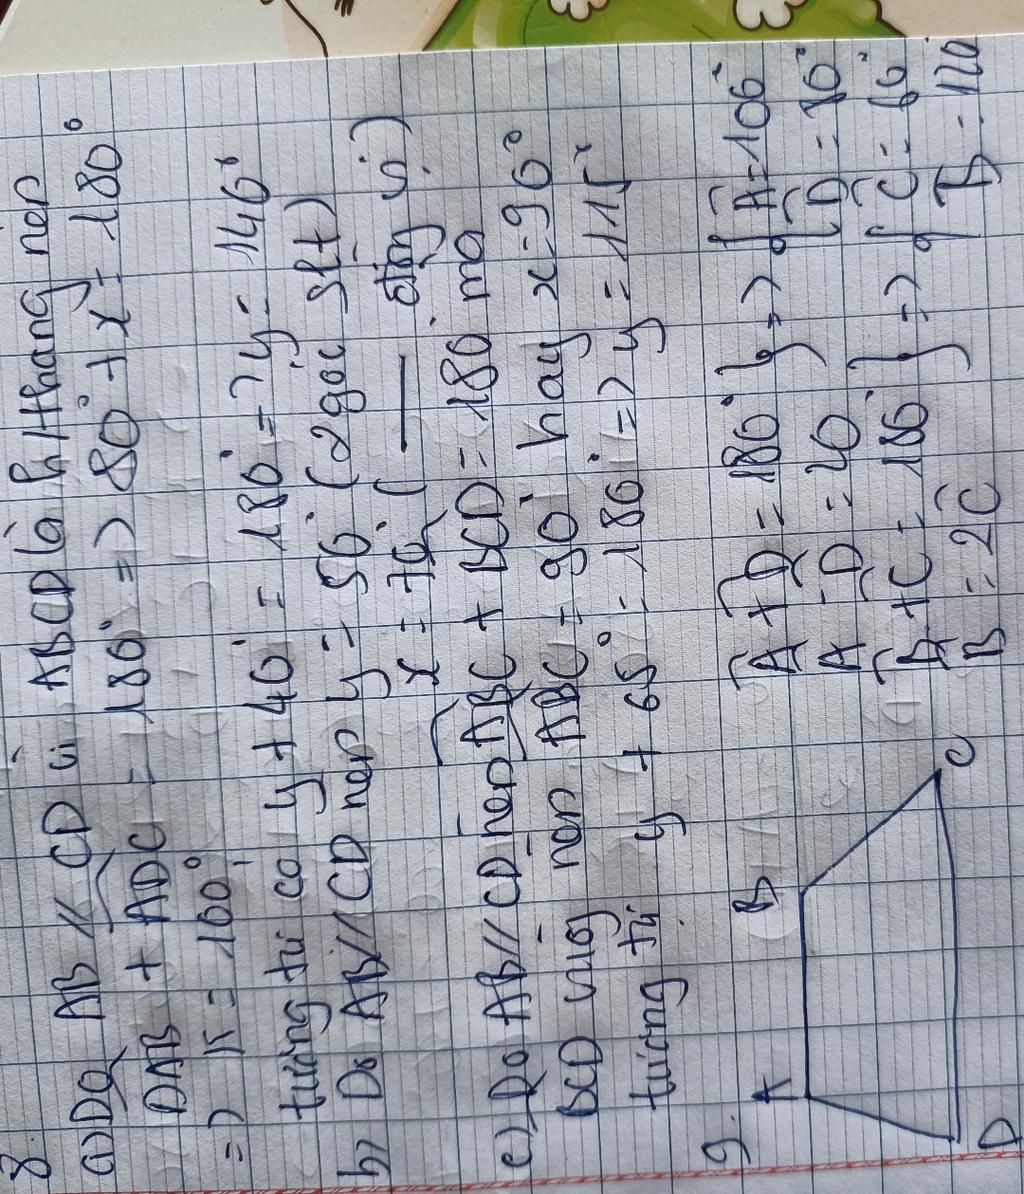 8.
a) Do AB // CD vì ABCD là h/thang nên
DAB + ADC = 180° => 80° + x = 180°
=> x = 100°
tương tự có y + 40° = 180° => y = 140°
b) Do AB // CD nên y = 50° (2 góc slt)
x = 70° ( — đồng vị)
c) Do AB // CD nên ABC + BCD = 180° mà
BCD vuông nên ABC = 90° hay x = 90°
tương tự y + 65° = 180° => y = 115°
9.
A B
D C
A + D = 180° } => { A = 100°
A - D = 20 } => { D = 80°
B + C = 180° } => { C = 60°
B = 2C } => { B = 120